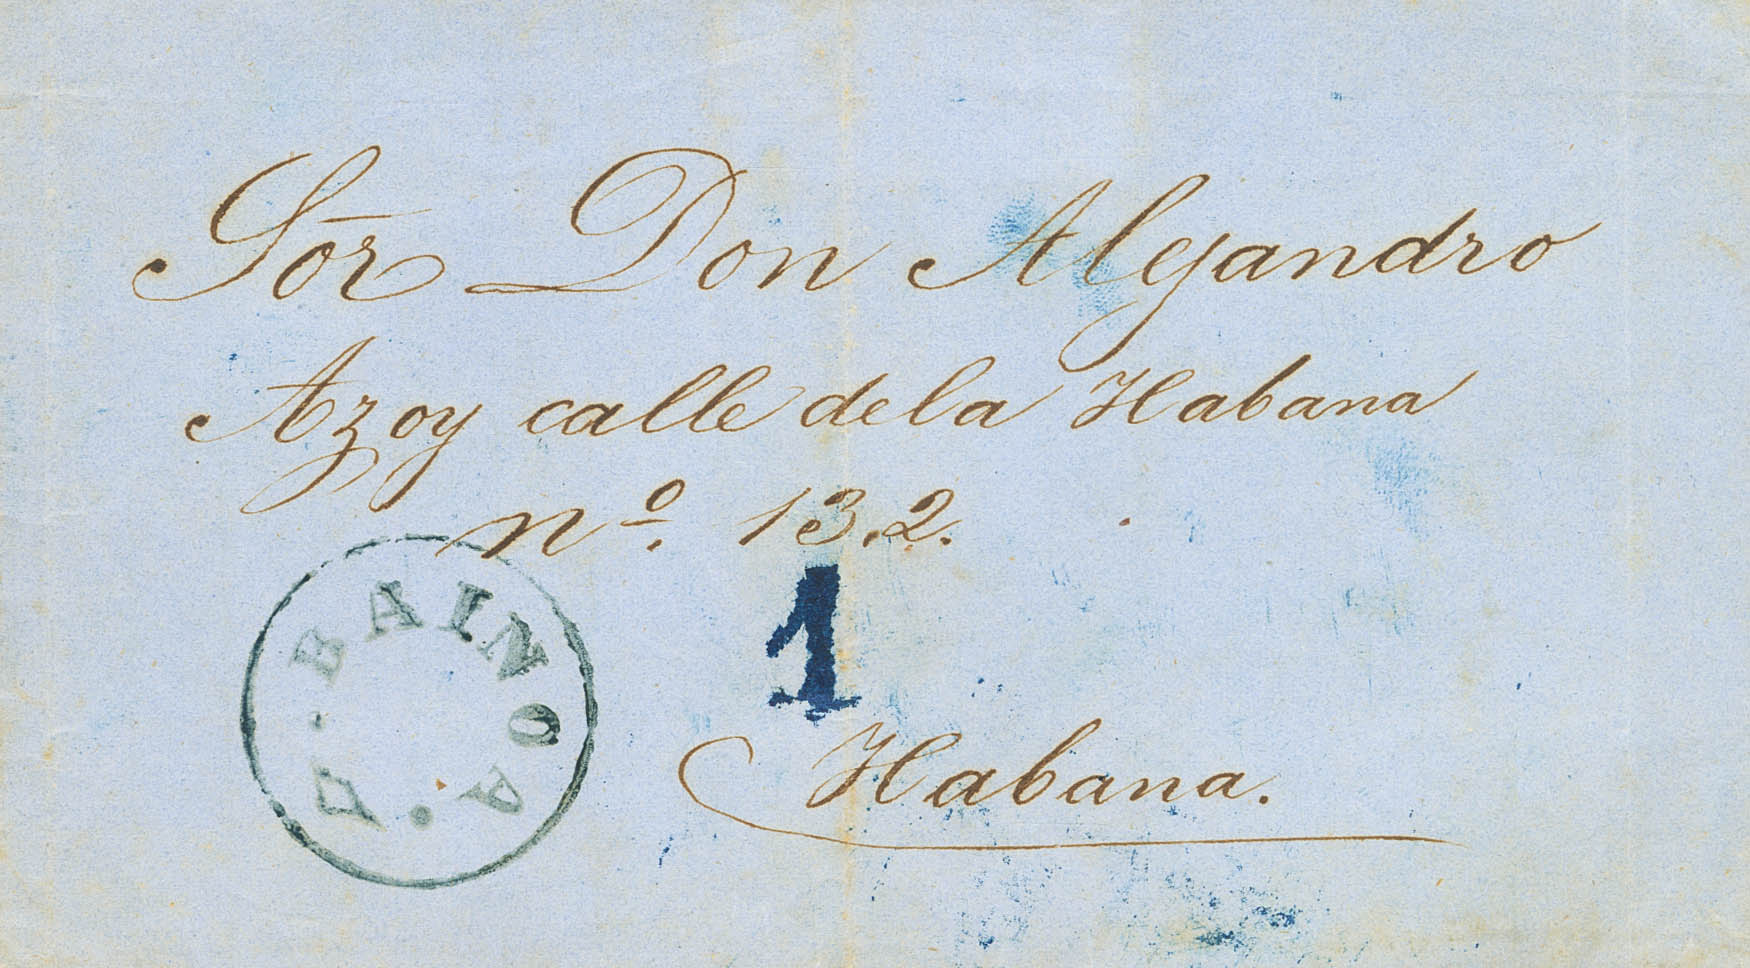 Sōr Don Alejandro
Azoy calle de la Habana
nº. 13.2.
1
Habana.
BAINOA